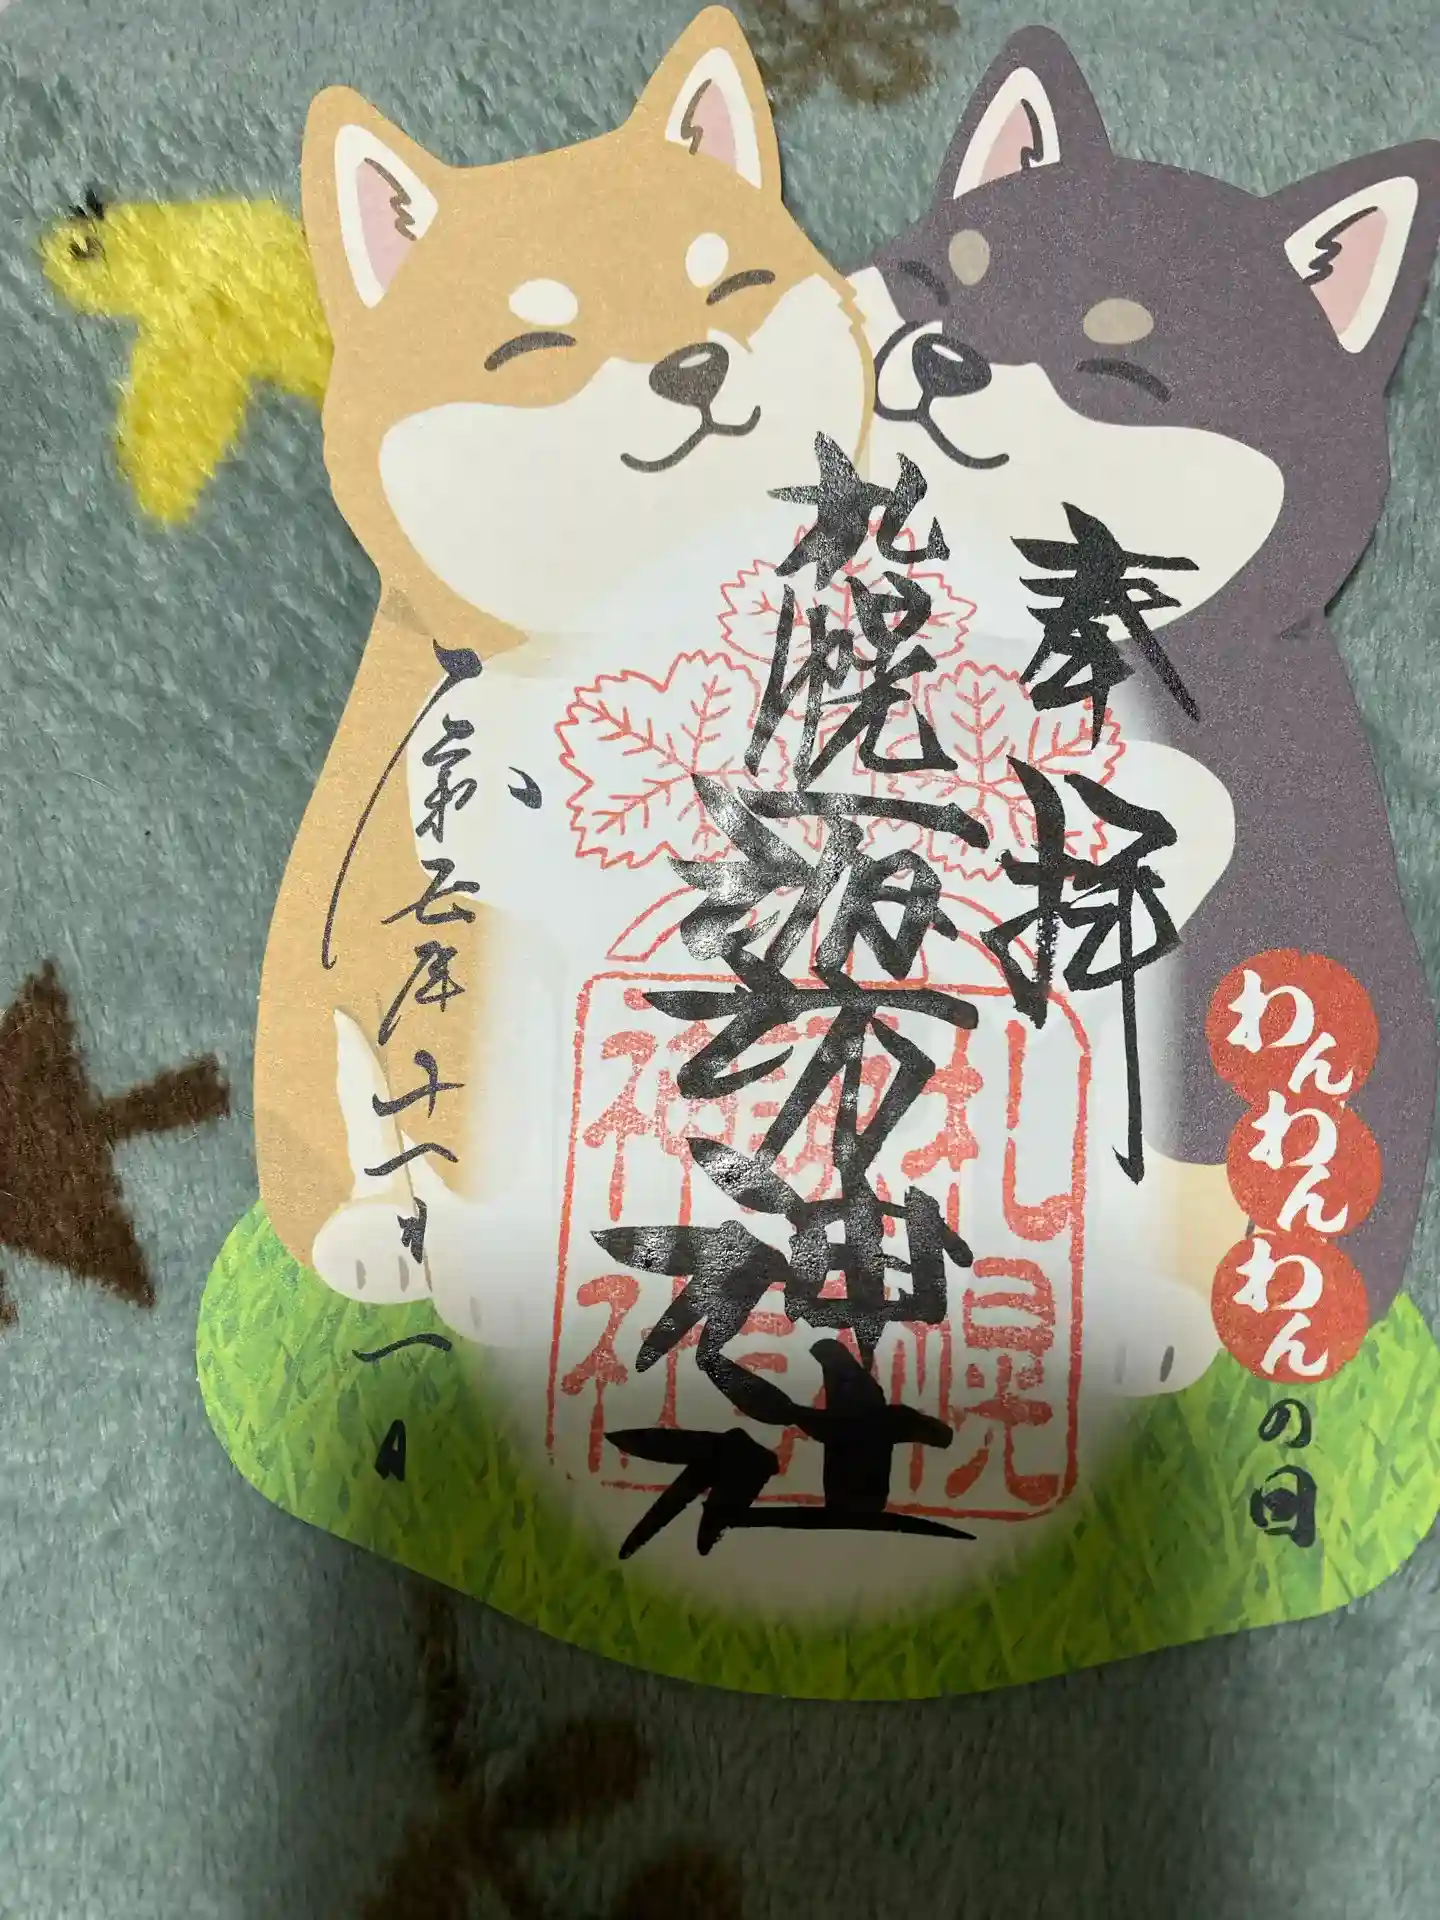 奉拝
わんわんわんの日
札幌諏訪神社
札幌
諏訪
神社
令和五年十一月一日